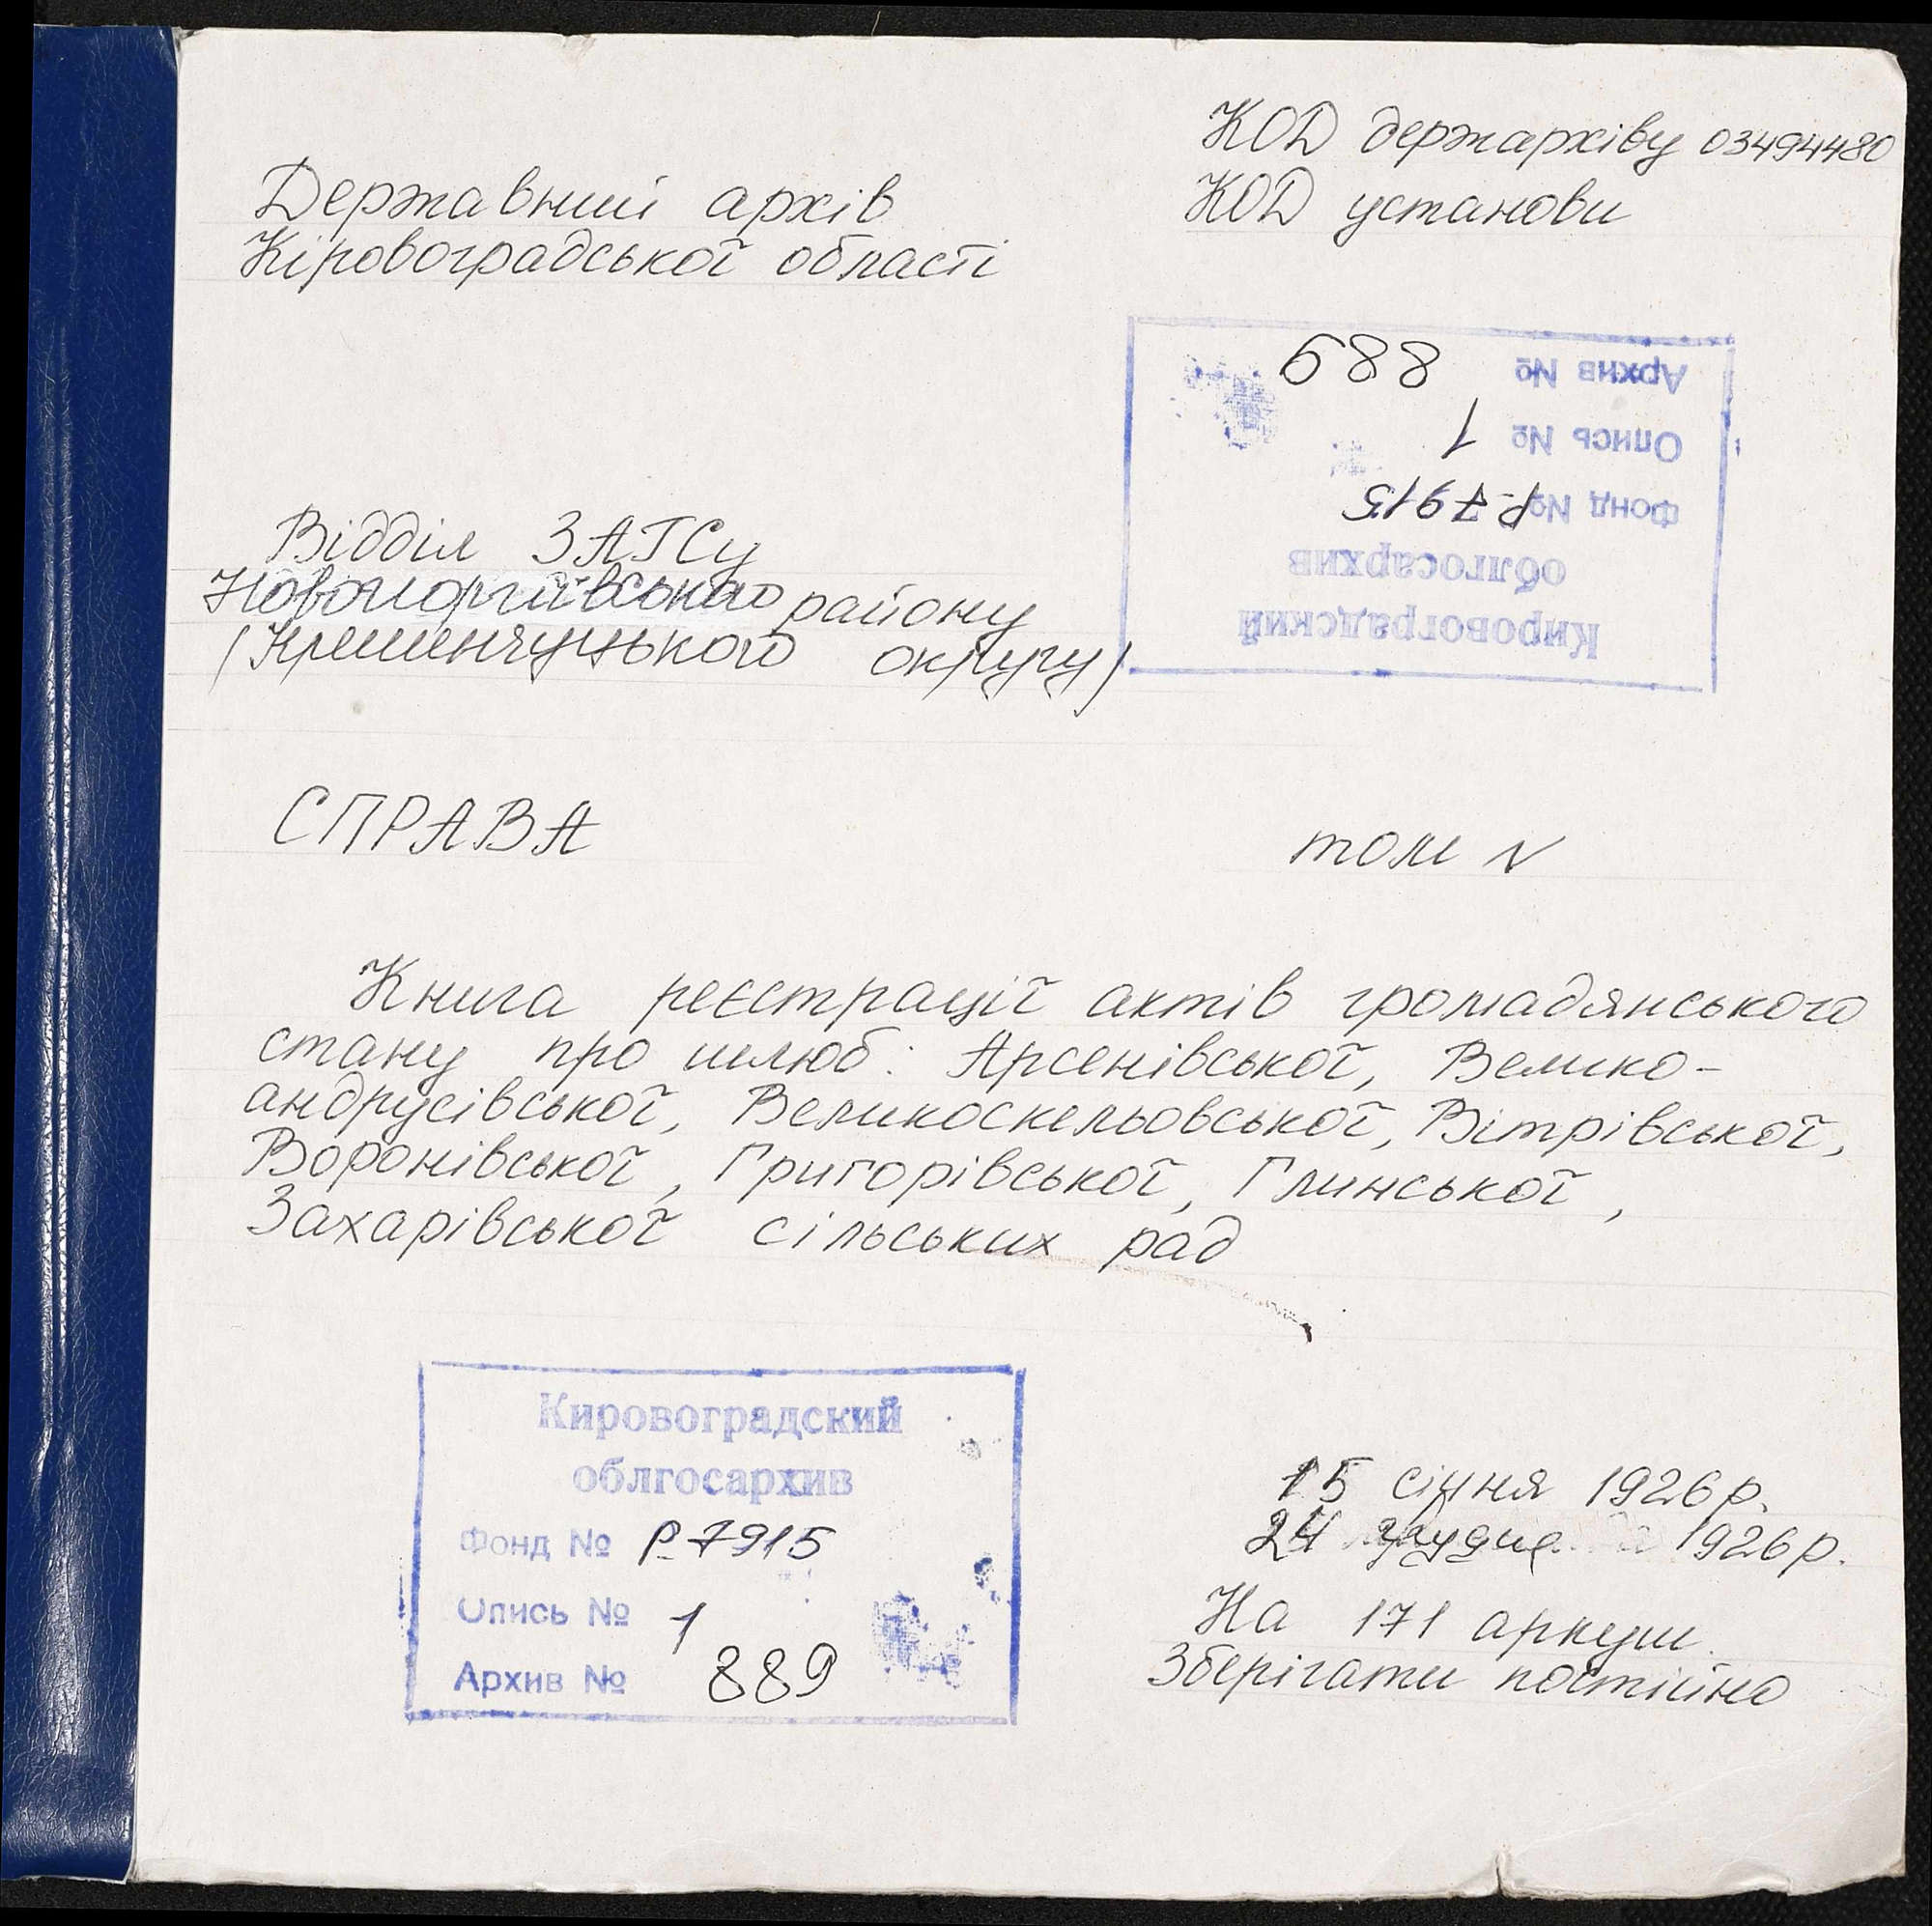 КОД держархіву 03494480
КОД установи
Державний архів
Кіровоградської області
Кировоградский
облгосархив
Фонд № Р-7915
Опись № 1
Архив № 889
Відділ ЗАГСу
Новогеоргіївського району
/Кременчуцького округу/
СПРАВА
том N
Книга реєстрації актів громадянського
стану про шлюб: Арсенівської, Велико-
андрусівської, Великоскельовської, Вітрівської,
Воронівської, Григорівської, Глинської,
Захарівської сільських рад
Кировоградский
облгосархив
Фонд № Р-7915
Опись № 1
Архив № 889
15 січня 1926 р.
24 грудня 1926 р.
На 171 аркуш
Зберігати постійно